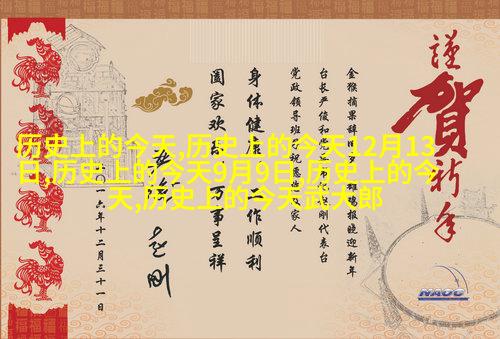 謹賀新年
金猴摘果辞 雄鸡报晓迎新年
台长严俊和党 刚代表台
党政领导班 祝 家人
身体健康 工作顺利
阖家欢乐 万事呈祥
赵刚
二〇一六年十二月三十一日
历史上的今天,历史上的今天12月13
日,历史上的今天9月9日,历史上的今
天,历史上的今天武大郎
NAOC